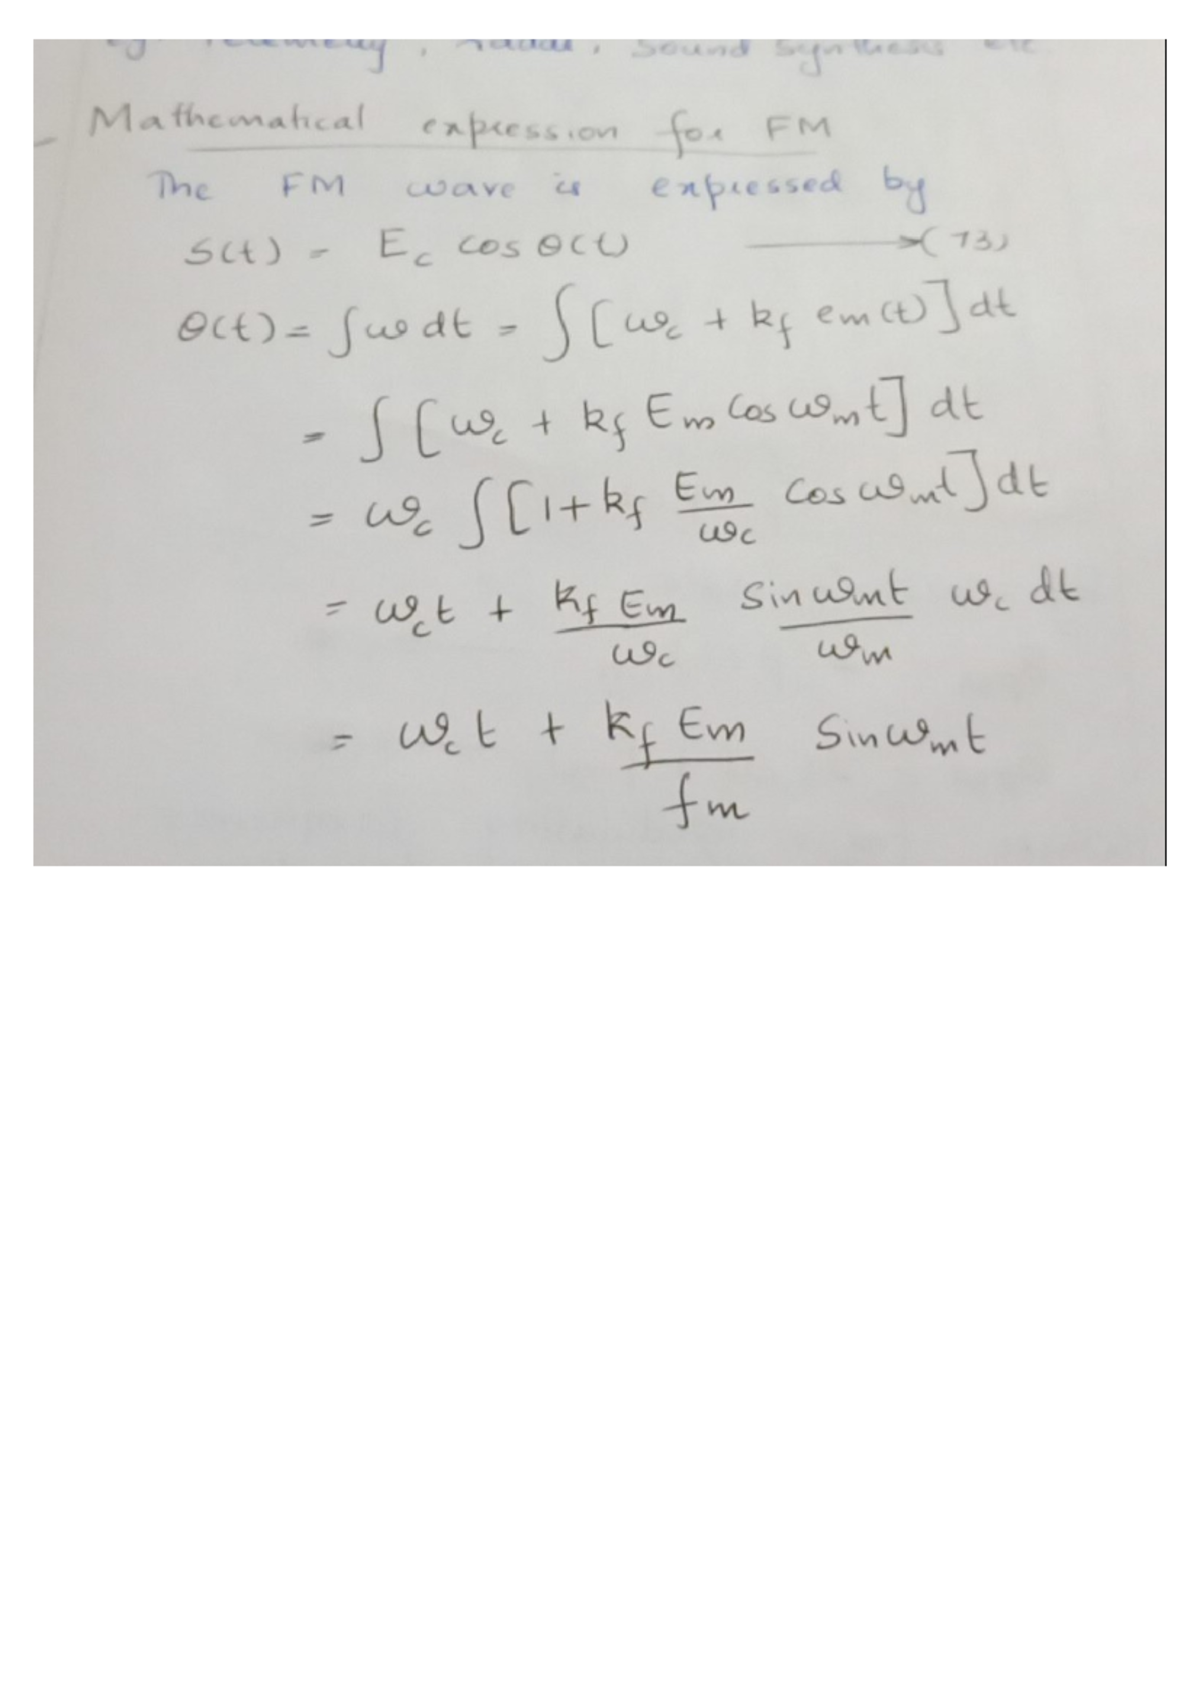 eg. Telemetry, radar, Sound Synthesis etc
Mathematical expression for FM
The FM wave is expressed by
S(t) = Ec cos θ(t) → (13)
θ(t) = ∫ω dt = ∫[ωc + kf em(t)] dt
= ∫[ωc + kf Em Cos ωmt] dt
= ωc ∫[1 + kf Em/ωc Cos ωmt] dt
= ωct + kf Em/ωc Sin ωmt/ωm ωc dt
= ωct + kf Em/fm Sin ωmt